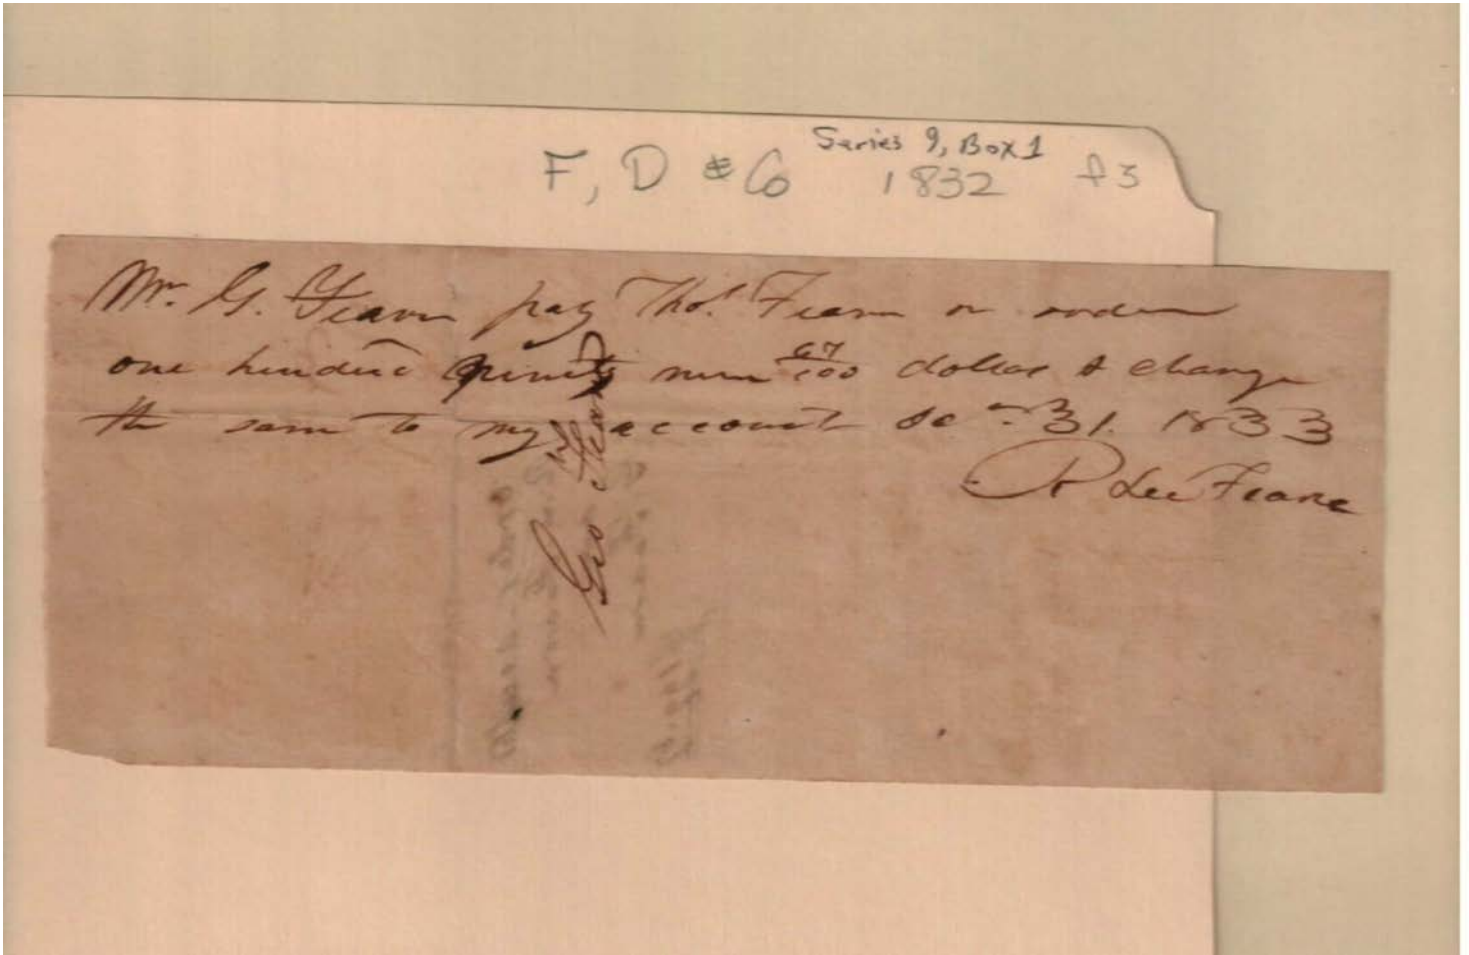 Series 9, Box 1
F, D & Co 1832 f3
Mr. G. Fearn pay Thos. Fearn or order
one hundred ninety nine 67/100 dollar & change
the same to my account Dec. 31. 1833
R Lee Fearn
Geo Fearn